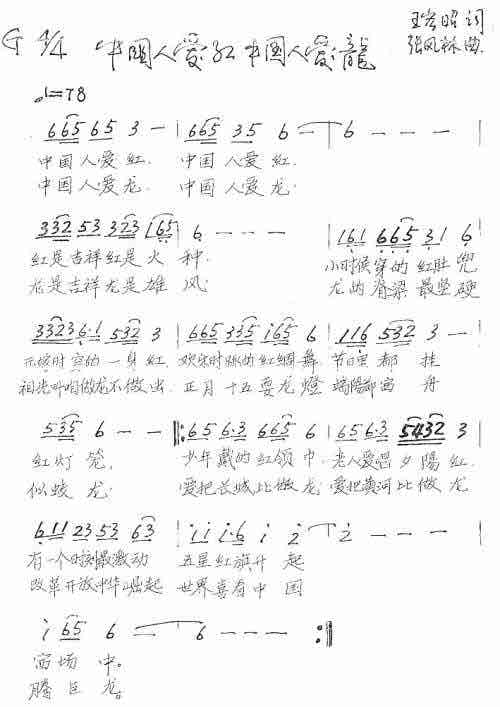 G 4/4 中國人愛红 中國人愛龍
词
张风林 曲
♩=78
6 6 5 6 5 3 — | 6 6 5 3 5 6 — | 6 — — — |
中国人爱红. 中国人爱红.
中国人爱龙. 中国人爱龙.
3 3 2 5 3 3 2 3 1 6 5 | 6 — — — | 1 6 1 6 6 5 3 1 6
红是吉祥红是火种. 小时候穿的红肚兜
龙是吉祥龙是雄风 龙的脊梁最坚硬
3 3 2 3 6 · 1 5 3 2 3 | 6 6 5 3 3 5 i 6 5 6 | 1 1 6 5 3 2 3 — |
穿的一身红, 欢乐时跳的红绸舞. 节日里都挂
做龙不做虫. 正月十五耍龙燈 端陽 舟
5 3 5 6 — — ‖: 6 5 6 · 3 6 6 5 6 | 6 5 6 · 3 5 4 3 2 3 |
红灯笼, 少年戴的红领巾. 老人爱唱夕陽红.
似蛟龙. 爱把长城比做龙 爱把黄河比做龙
6 1 1 2 3 5 3 6 3 | i i i · 6 i 2 — | 2 — — — |
有一个时刻最激动 五星红旗升起
改革开放中华崛起 世界喜看中国
i 6 5 6 — | 6 — — — :‖
场中。
腾巨龙。